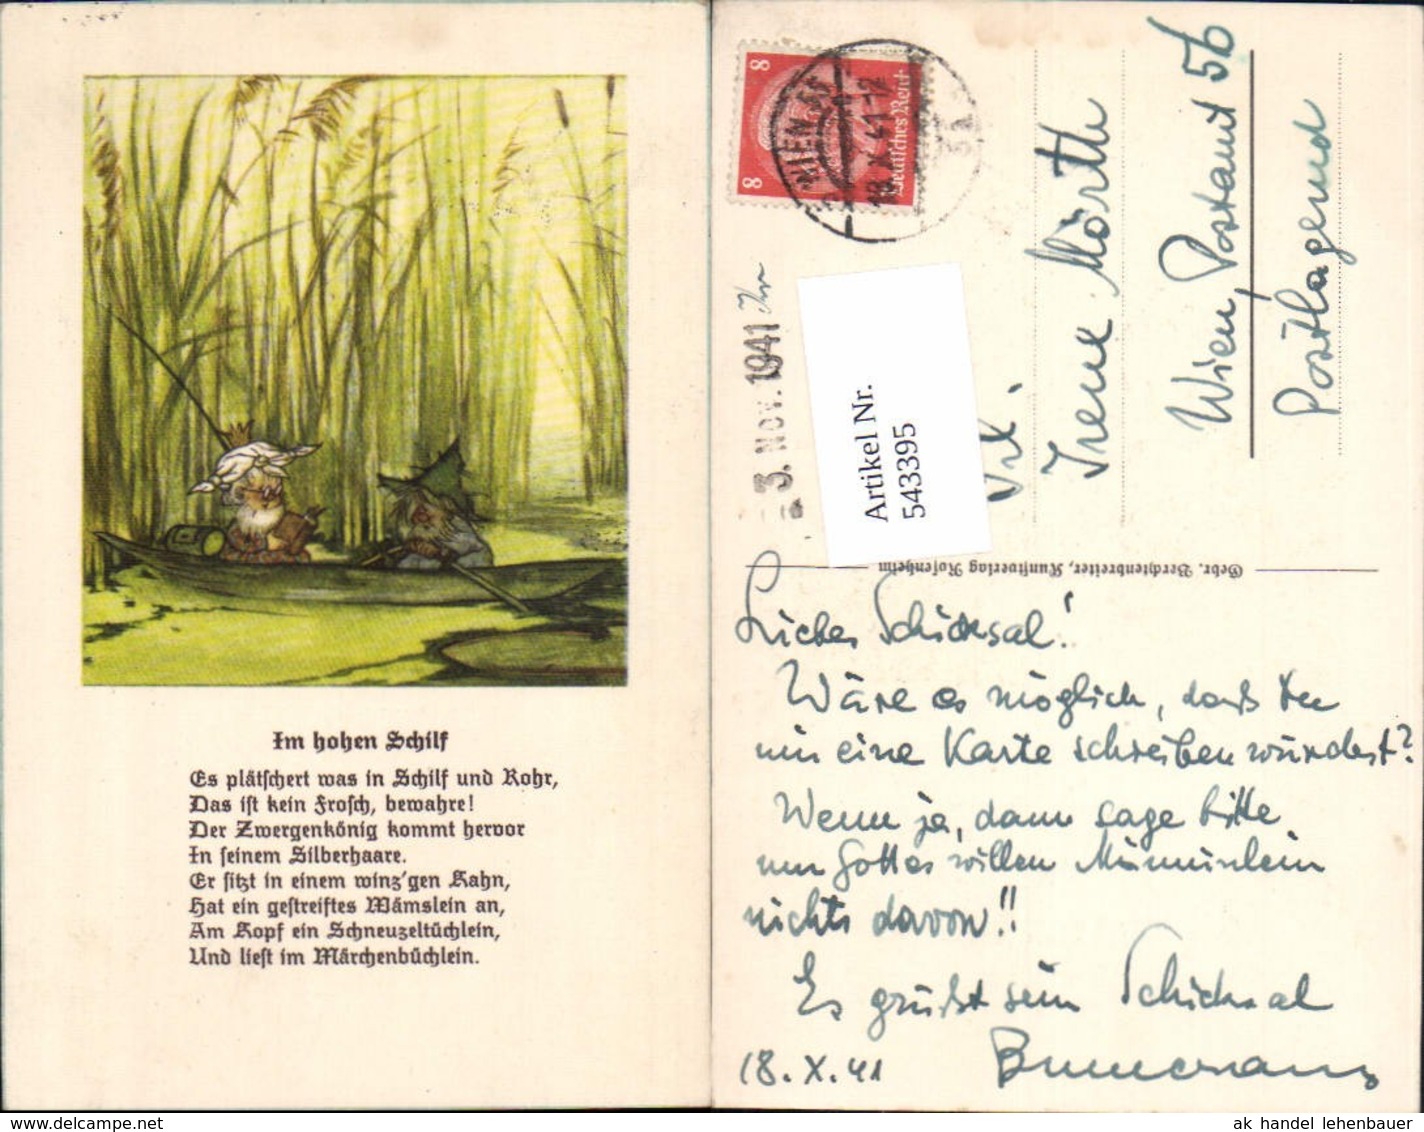 Im hohen Schilf
Es plätschert was in Schilf und Rohr,
Das ist kein Frosch, bewahre!
Der Zwergenkönig kommt hervor
In seinem Silberhaare.
Er sitzt in einem winz'gen Kahn,
Hat ein gestreiftes Wämslein an,
Am Kopf ein Schneuzeltüchlein,
Und liest im Märchenbüchlein.
8 8
Deutsches Reich
WIEN
18. X. 41-12
3. Nov. 1941
Artikel Nr.
543395
Frl.
Irene Mörth
Wien, Postamt 56
Postlagernd
Gebr. Berchtenbreiter, Kunstverlag Rosenheim
Liebes Schicksal!
Wäre es möglich, daß Du
mir eine Karte schreiben würdest?
Wenn ja, dann sage bitte
um Gottes willen
nichts davon!!
Es grüßt sein Schicksal
18. X. 41
ak handel lehenbauer